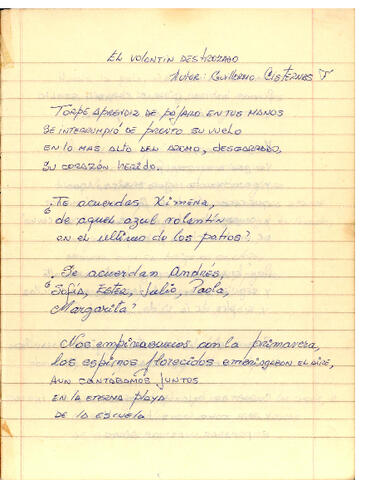 EL VOLANTÍN DESTROZADO
AUTOR: GUILLERMO CISTERNAS
TORPE APRENDIZ DE PÁJARO EN TUS MANOS
SE INTERRUMPIÓ DE PRONTO SU VUELO
EN LO MAS ALTO DEL AROMO, DESGARRADO,
SU CORAZÓN HERIDO.
¿Te acuerdas Ximena,
de aquel azul volantín
en el ultimo de los patios?
¿Se acuerdan Andrés,
Sofía, Ester, Julio, Paola,
Margarita?
Nos empinábamos con la primavera,
los espinos florecidos EL AIRE,
AUN CANTÁBAMOS JUNTOS
EN LA ETERNA PLAYA
DE LA ESCUELA